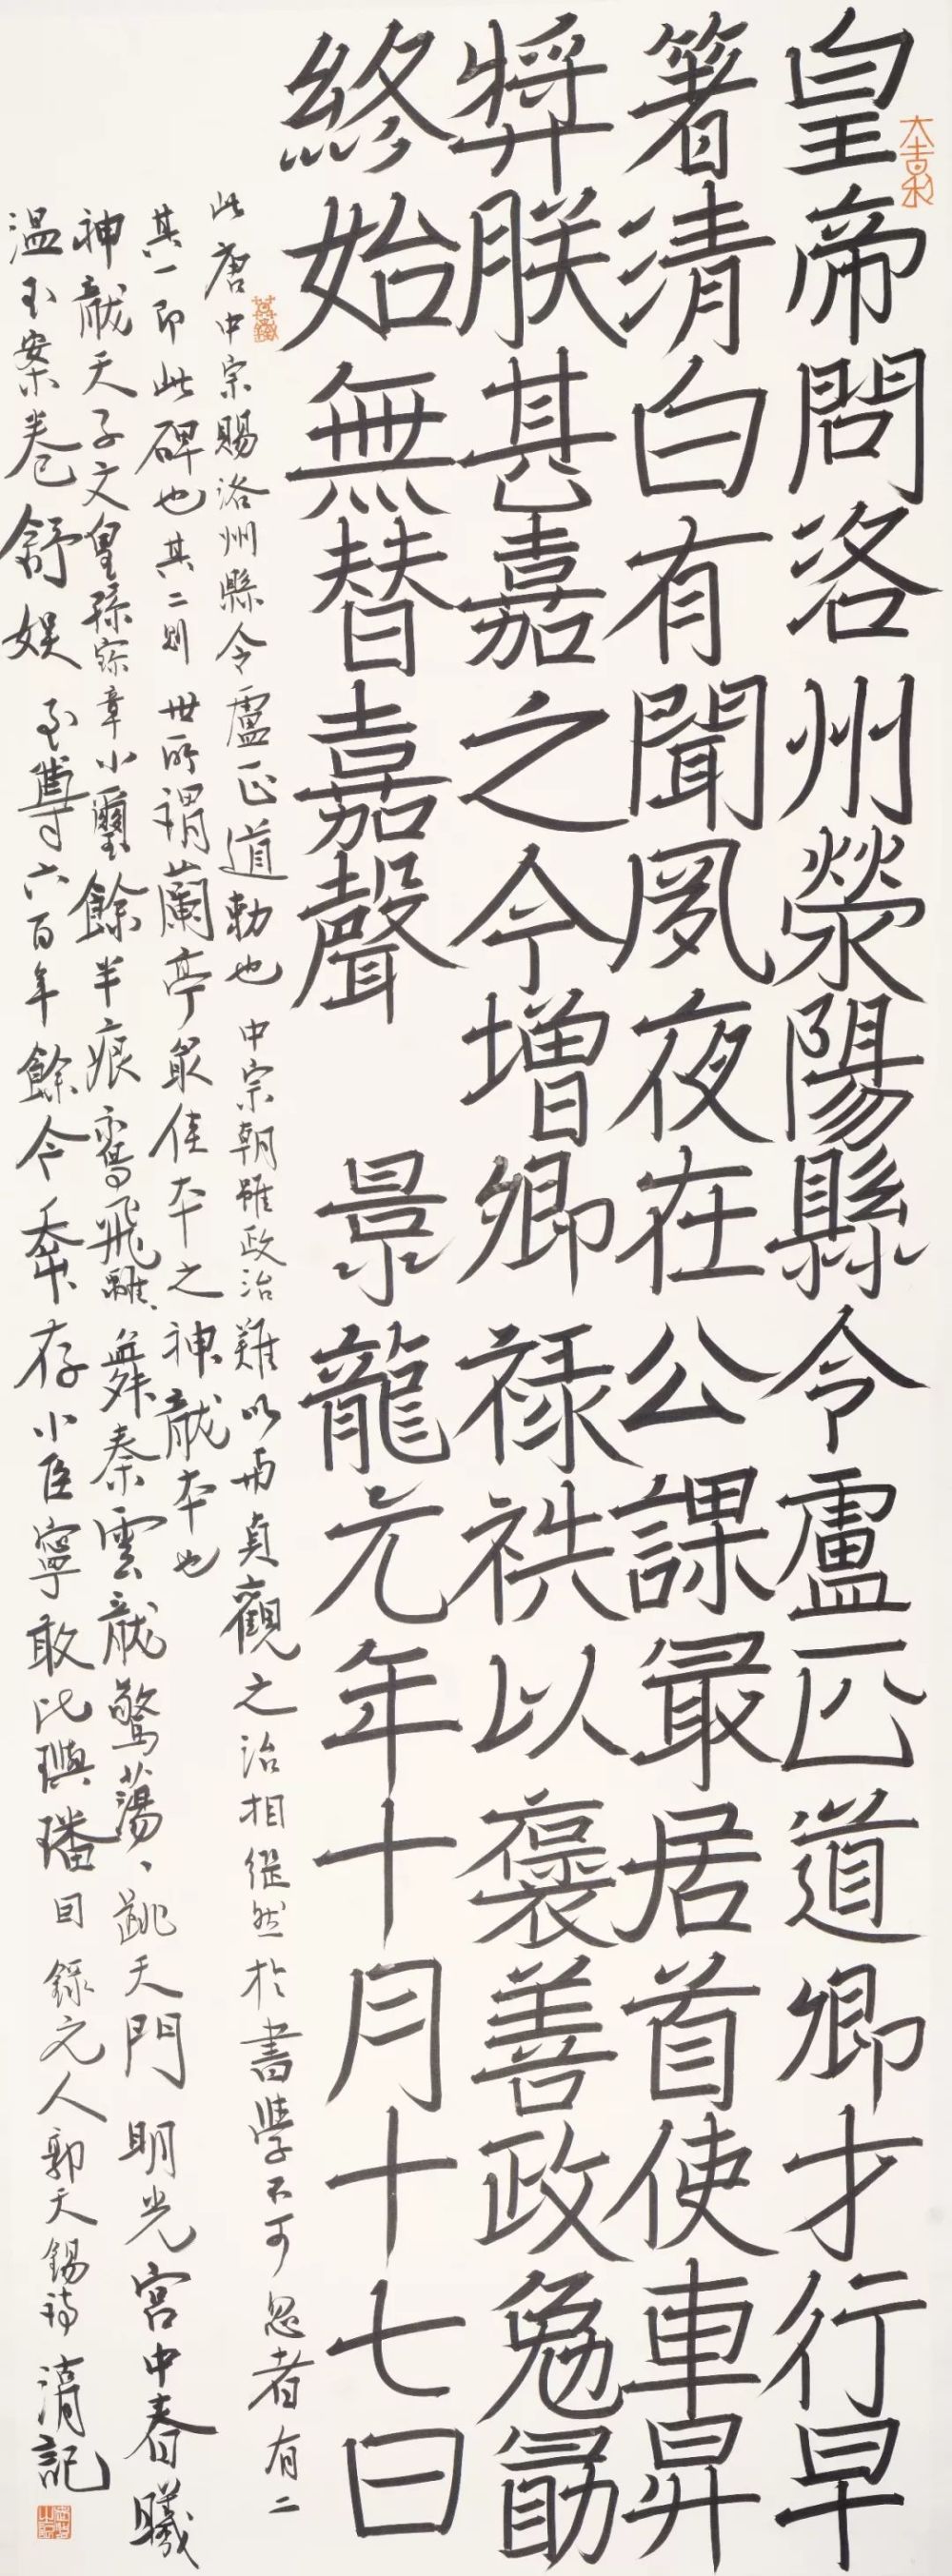 皇帝問洛州滎陽縣令盧正道卿才行早
著清白有聞夙夜在公課最居首使車昇
獎朕甚嘉之今增卿禄袟以褒善政勉勗
終始無替嘉聲 景龍元年十月十七日
此唐中宗賜洛州縣令盧正道勅也 中宗朝雖政治難以與貞觀之治相繼然於書學不可忽者有二
其一即此碑也其二則世所謂蘭亭最佳本之神龍本也
神龍天子文皇孫寶章小璽餘半痕鸞飛離離舞秦雲龍驚蕩蕩跳天門明光宮中春曦
温玉案卷舒娱至尊六百年餘今幸存小臣寧敢比璵璠目錄元人郭天錫詩 淯記
大吉利